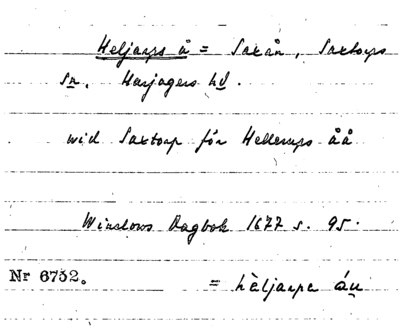 Heljarps å = Saxån, Saxtorps
sn, Harjagers hd.
wid Saxtorp för Hellerups åå
Winslows Dagbok 1677 s. 95.
Nr 6752.
= hàljarpa áu